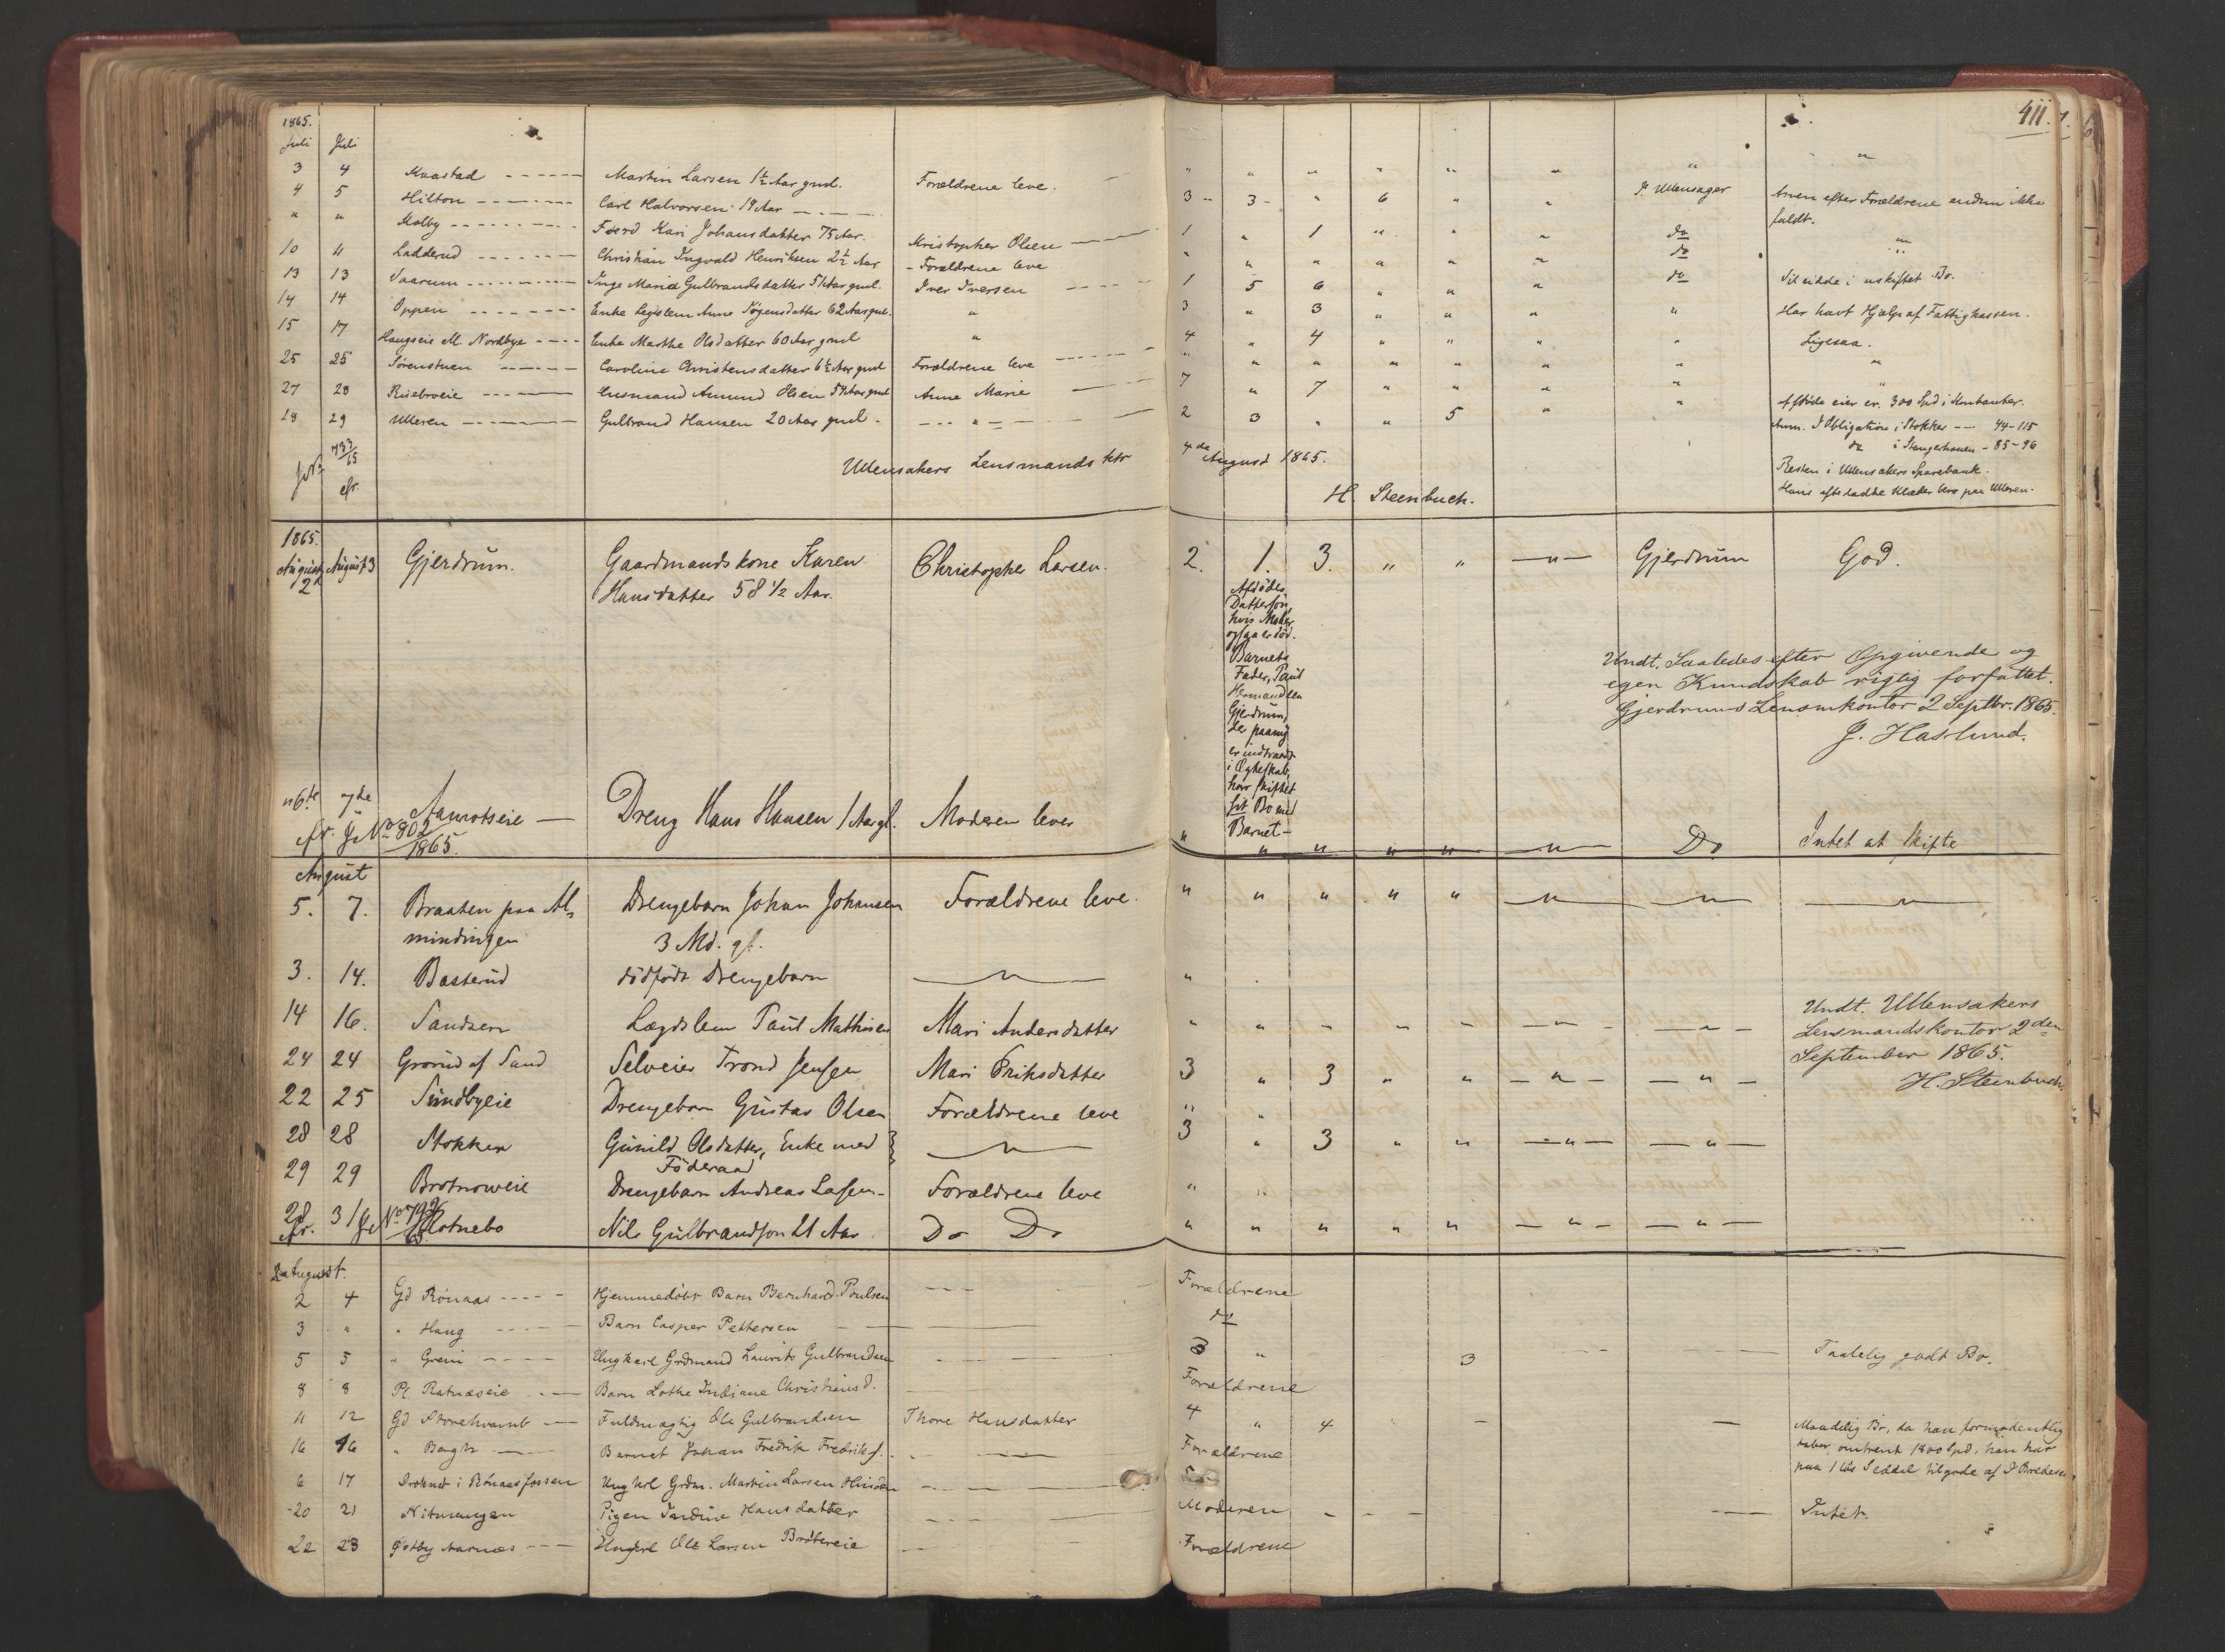 411.
1865.
Juli Juli
3 4 Maastad Martin Larsen 1½ Aar gml. Forældrene leve. " " " " " " " "
4 5 Hilton Carl Halvorsen 19 Aar 3 3 " 6 " " I Ullensager Arven efter Forældrene endnu ikke
faldt.
" " Molby Føerd Kari Johansdatter 75 Aar. Kristopher Olsen 1 " 1 " " " do "
10 11 Ladderud Christian Ingvald Henriksen 2½ Aar Forældrene leve " " " " " " do "
13 13 Vaarum Inge Maria Gulbrandsdatter 51 Aar gml. Iver Iversen 1 5 6 " " " do Sit sidde i uskiftet Bo.
14 14 Oppen Enke Legslem Anne Jørgensdatter 62 Aar gml. " 3 " 3 " " " " Har havt Hjælp af Fattigkassen.
15 17 Haugseie u. Nordbye Enke Marthe Olsdatter 60 Aar gml " 4 " 4 " " " " Ligesaa.
25 25 Sørenstuen Caroline Christensdatter 6½ Aar gml Forældrene leve " " " " " " " "
27 28 Risebroeie Husmand Amund Olsen 54 Aar gml Anne Marie 7 " 7 " " " " "
28 29 Ulleren Gulbrand Hansen 20 Aar gml. " 2 3 " " 5 " " Afdøde eier ca. 300 Spd i Kontanter.
Anm. I Obligation i Stokker 44-115
do i Stangerhaven - 85-96
Resten i Ullensakers Sparebank.
Hans efterladte Klæder bero paa Ulleren.
Jr. 733/65
cfr.
Ullensakers Lensmands ktr 4de August 1865.
H. Steenbuch.
1865.
August 2 August 3 Gjerdrum. Gaardmandskone Karen Christopher Larsen. 2. 1. 3. " " " Gjerdrum God.
Hansdatter 58 1/2 Aar.
Afdödes
Dattersön,
hvis Moder
ogsaa er död.
Barnets
Fader, Paul
Hermandsen
Gjerdrum,
der paany
er indtraadt
i Ægteskab,
har skiftet
sit Bo med
Barnet -
Undt. Saaledes efter Opgivende og
egen Kundskab rigtig forfattet.
Gjerdrums Lensmkontor 2 Septbr. 1865.
J. Haslund.
"6te 7de Aamotseie Dreng Hans Hansen 1 Aar gl. Moderen lever " " " " " " Do Intet at skifte
cfr. J. No 802
1865.
August
5. 7. Braaten paa Al- Drengebarn Johan Johansen Forældrene leve. " " " " " " " "
mindingen 3 Md. gl.
3. 14. Basterud dödfödt Drengebarn " "
14 16. Sandsern Lægdslem Paul Mathisen Mari Andersdatter " " " " " " "
24 24 Grorud af Sand Selveier Trond Jensen Mari Eriksdatter 3 " 3 " " " "
22 25 Sundbyeie Drengebarn Gustav Olsen Forældrene leve " "
28 28 Stokker Gunild Olsdatter, Enke med " 3 " 3 " " " "
Föderaad
29 29 Brotnoweie Drengebarn Andreas Larsen Forældrene leve " "
28 31 Slotnebo Nils Gulbrandsen 21 Aar Do Do " " " " " " "
cfr. J. No 792
65
Undt. Ullensakers
Lensmandskontor 2den
September 1865.
H. Steenbuch.
August.
2 4 Gd Rönaas Hjemmedöbt Barn Bernhard Poulsen Forældrene
3 " " Haug Barn Casper Pettersen do
5 5 " Greni Ungkarl Grdmand Laurits Gulbrandsen 3 " 3 Taalelig godt Bo.
8 8 Pl. Ratnæseie Barn Lothe Indiane Christiansd. Forældrene
11 12 Gd Storehvamb Fuldmægtig Ole Gulbrandsen Thore Hansdatter 4 " 4 Maadelig Bo, da han formodentlig
taber omtrent 1800 Spd, han har
paa 1 lös Seddel tilgode af P Bredesen.
16 16 " Bergh Barnet Johan Fredrik Fredriks. Forældrene
6 17 Druknet i Rönaasfossen Ungkrl Grdm. Martin Larsen
20 21 Nitmungen Pigen Jardine Hansdatter Moderen Intet.
22 23 Østby Aarnæs Ungkrl Ole Larsen Bröttereie Forældrene